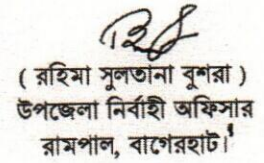 ( রহিমা সুলতানা বুশরা )
উপজেলা নির্বাহী অফিসার
রামপাল, বাগেরহাট।